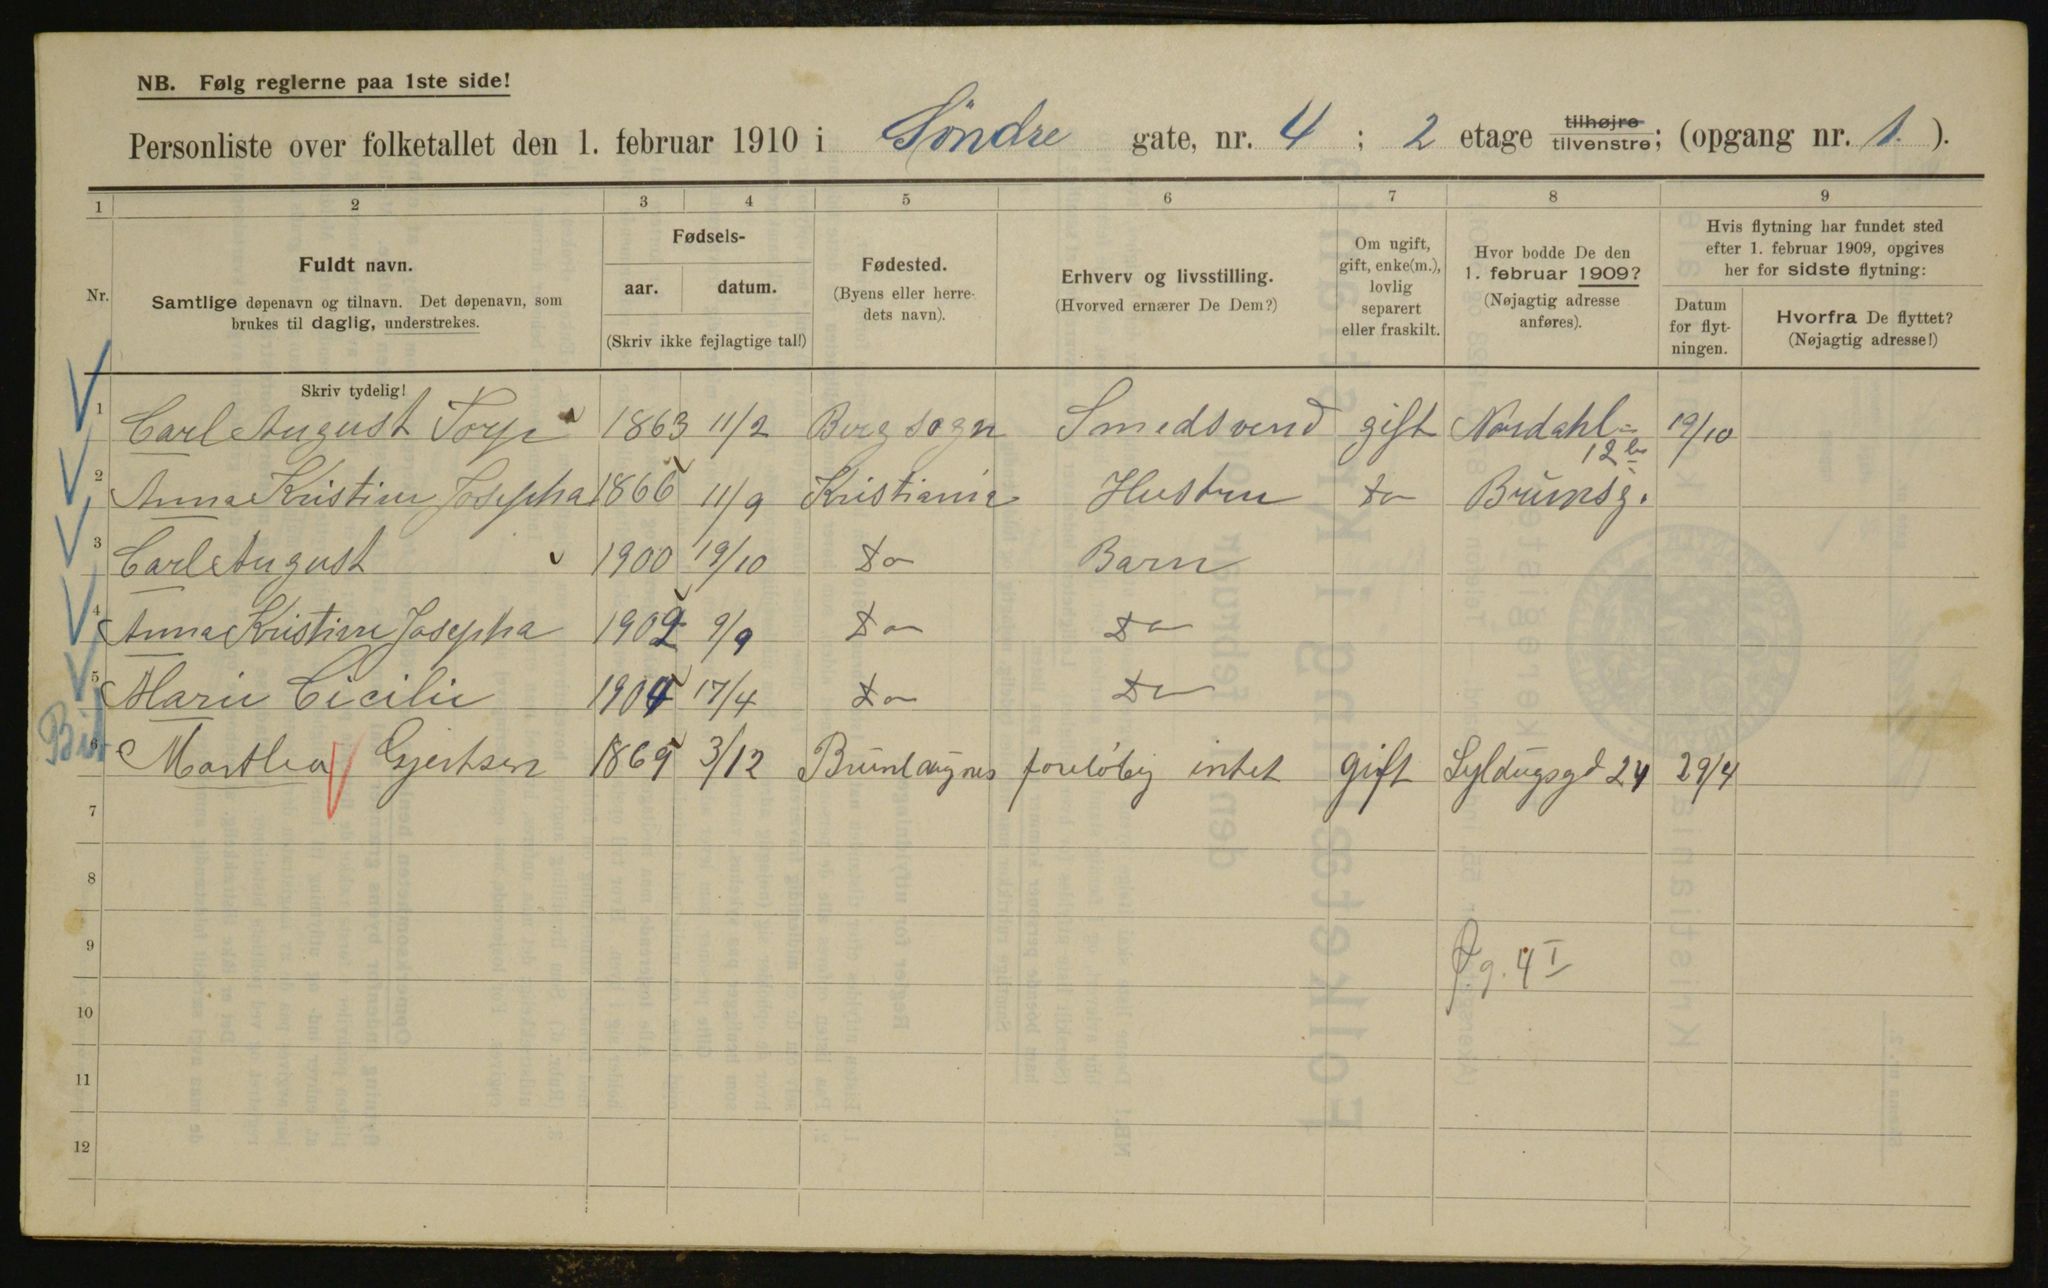 NB. Følg reglerne paa 1ste side!
Personliste over folketallet den 1. februar 1910 i Söndre gate, nr. 4 ; 2 etage tilhøjre tilvenstre; (opgang nr. 1. ).
1 2 3 4 5 6 7 8 9
Nr.
Fuldt navn.
Samtlige døpenavn og tilnavn. Det døpenavn, som
brukes til daglig, understrekes.
Skriv tydelig!
Fødsels-
aar. datum.
(Skriv ikke fejlagtige tal!)
Fødested.
(Byens eller herre-
dets navn).
Erhverv og livsstilling.
(Hvorved ernærer De Dem?)
Om ugift,
gift, enke(m.),
lovlig
separert
eller fraskilt.
Hvor bodde De den
1. februar 1909?
(Nøjagtig adresse
anføres).
Hvis flytning har fundet sted
efter 1. februar 1909, opgives
her for sidste flytning:
Datum
for flyt-
ningen.
Hvorfra De flyttet?
(Nøjagtig adresse!)
1 Carl August Torp 1863 11/2 Berg sogn Smedsvend gift Nordahl= 19/10
2 Anna Kristine Josepha 1866 11/9 Kristiania Hustru do Brunsg. 12
3 Carl August 1900 19/10 do Barn
4 Anna Kristine Josepha 1902 9/9 do do
5 Marie Cicilie 1904 17/4 do do
6 Marthea Gjertsen 1869 3/12 Brunlaugnes foreløbig intet gift 24 29/4
7
8
9 g. 4 I
10
11
12